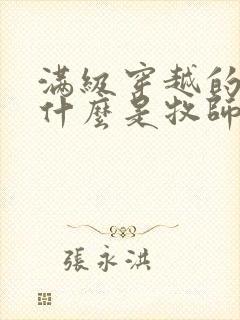 滿級穿越的
什麼是牧師
張永洪